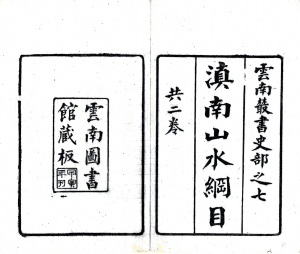 雲南叢書史部之七
滇南山水綱目
共二卷
雲南圖書
館藏板